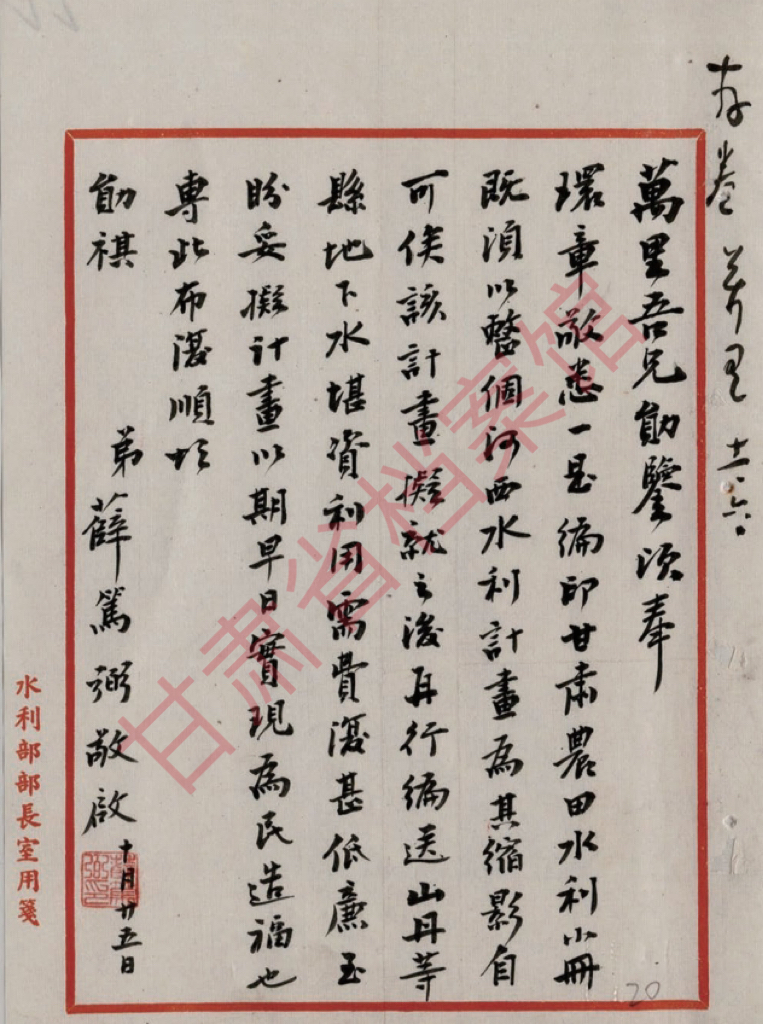 存卷 十一、六
萬里吾兄勛鑒頃奉
環章敬悉一是編印甘肅農田水利小冊
既須以整個河西水利計畫為其縮影自
可俟該計畫擬就之後再行編送山丹等
縣地下水堪資利用需費復甚低廉至
盼妥擬計畫以期早日實現為民造福也
專此布復順頌
勛祺
弟薛篤弼敬啟 十月廿五日
水利部部長室用箋
甘肃省档案馆
20